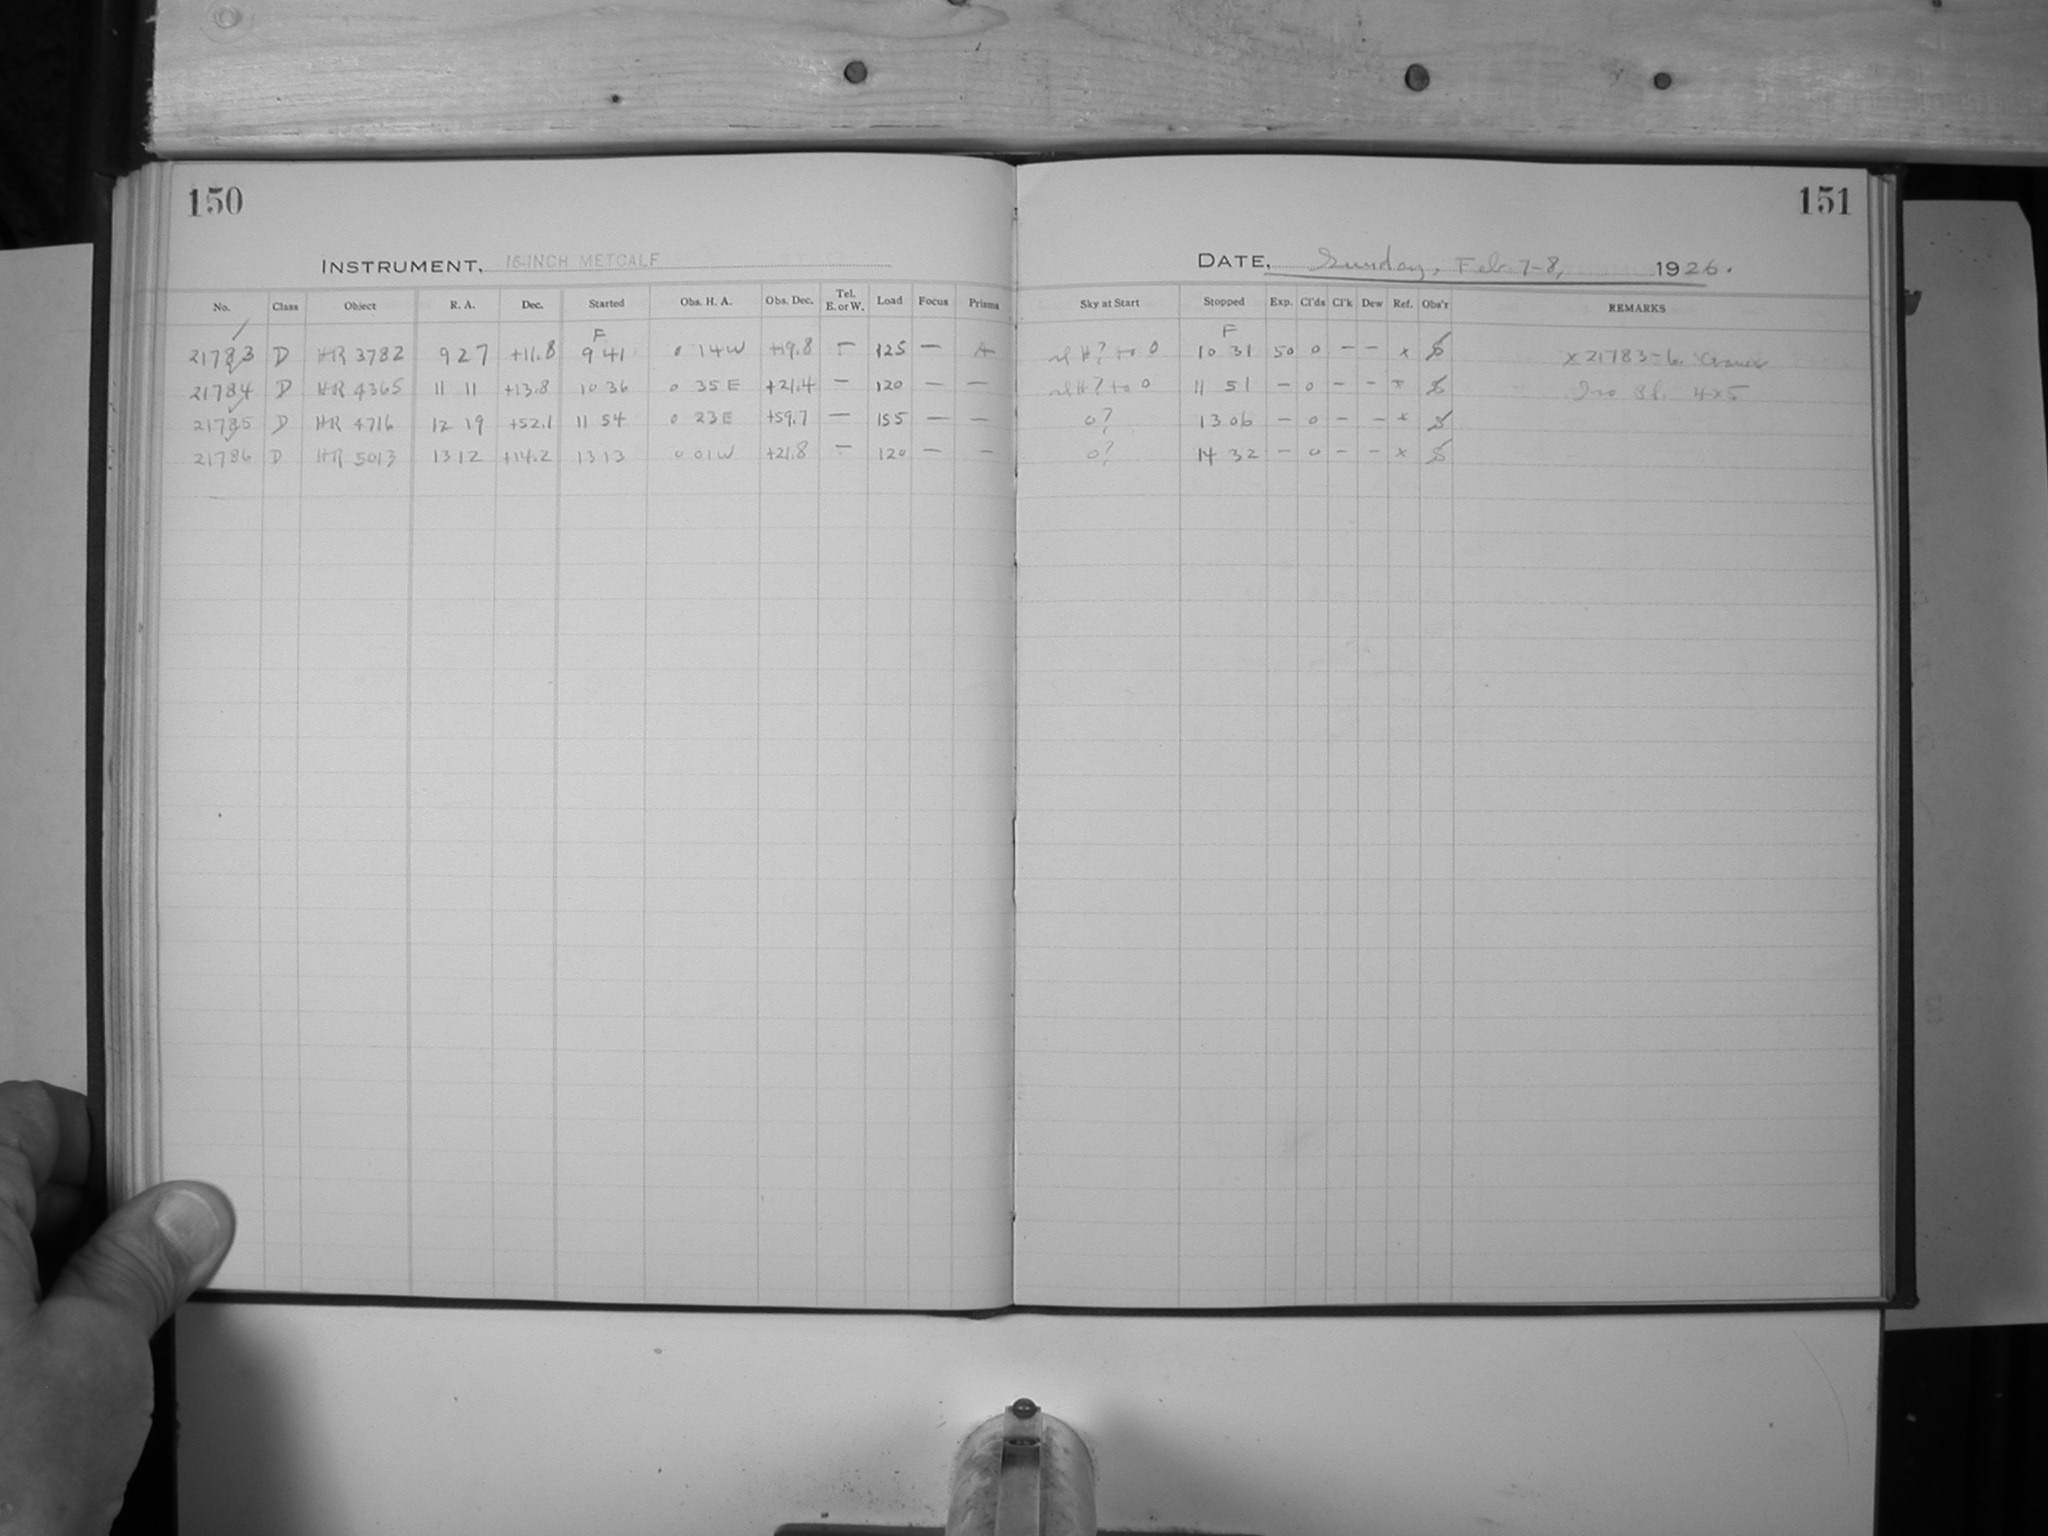 150
151
INSTRUMENT, 16-INCH METCALF
DATE, Sunday, Feb. 7-8, 1926.
No. Class Object R. A. Dec. Started Obs. H. A. Obs. Dec. Tel. E. or W. Load Focus Prisms Sky at Start Stopped Exp. Cl'ds Cl'k Dew Ref. Obs'r REMARKS
F F
21783 D HR 3782 9 27 +11.8 9 41 0 14W +19.8 — 125 — A H? to 0 10 31 50 0 — — x x 21783-6 Cramer
21784 D HR 4365 11 11 +13.8 10 36 0 35E +21.4 — 120 — — H? to 0 11 51 — 0 — — x 4x5
21785 D HR 4716 12 19 +52.1 11 54 0 23E +59.7 — 155 — — 0? 13 06 — 0 — — x
21786 D HR 5013 13 12 +14.2 13 13 0 01W +21.8 — 120 — — 0? 14 32 — 0 — — x